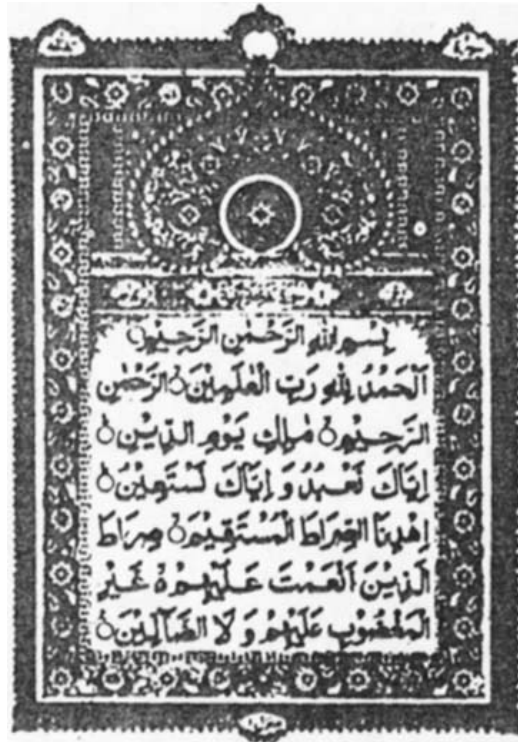 بِسْمِ اللهِ الرَّحْمٰنِ الرَّحِيْمِ
اَلْحَمْدُ لِلّٰهِ رَبِّ الْعٰلَمِيْنَ ۙ الرَّحْمٰنِ
الرَّحِيْمِ ۙ مٰلِكِ يَوْمِ الدِّيْنِ ۙ
اِيَّاكَ نَعْبُدُ وَ اِيَّاكَ نَسْتَعِيْنُ ۙ
اِهْدِنَا الصِّرَاطَ الْمُسْتَقِيْمَ ۙ صِرَاطَ
الَّذِيْنَ اَنْعَمْتَ عَلَيْهِمْ ۙ غَيْرِ
الْمَغْضُوْبِ عَلَيْهِمْ وَ لَا الضَّآلِّيْنَ ۙ